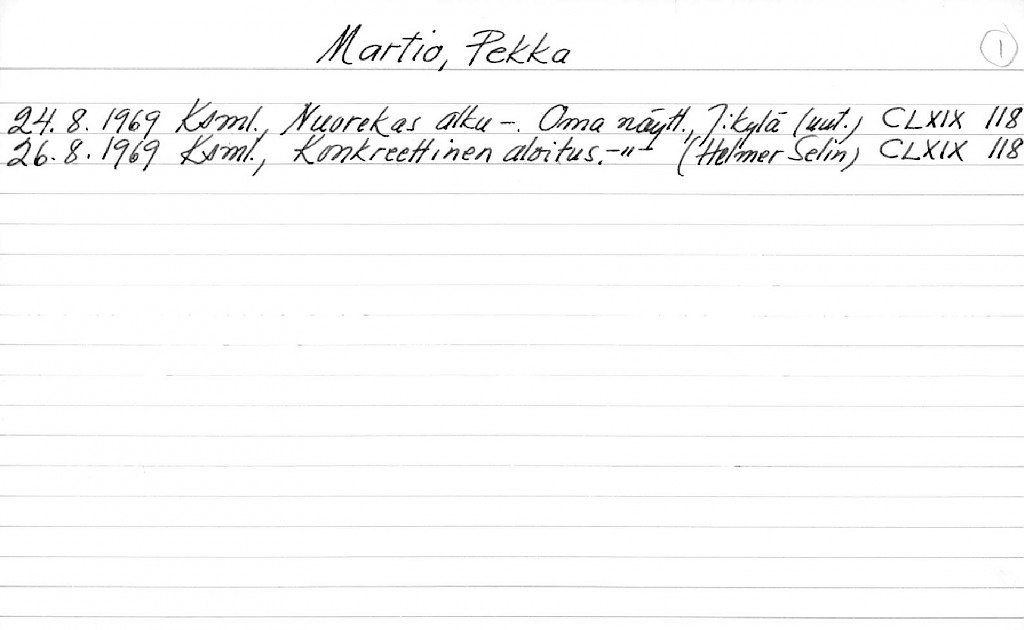 Martio, Pekka
1
24.8.1969 Ksml., Nuorekas alku -. Oma näytt., J:kylä (uut.) CLXIX 118
26.8.1969 Ksml., Konkreettinen aloitus. -"- (Helmer Selin) CLXIX 118